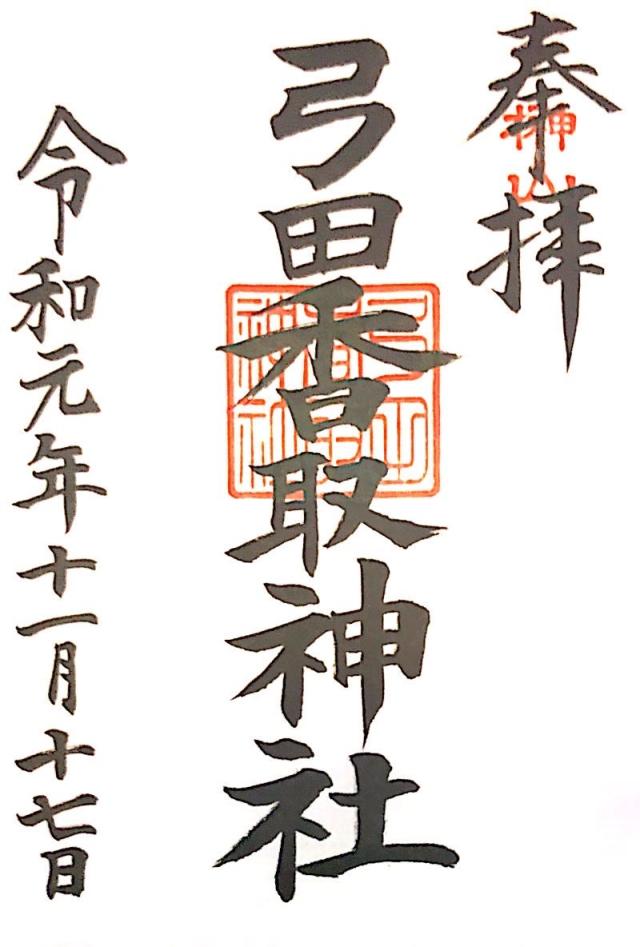 奉拝
弓田香取神社
令和元年十一月十七日